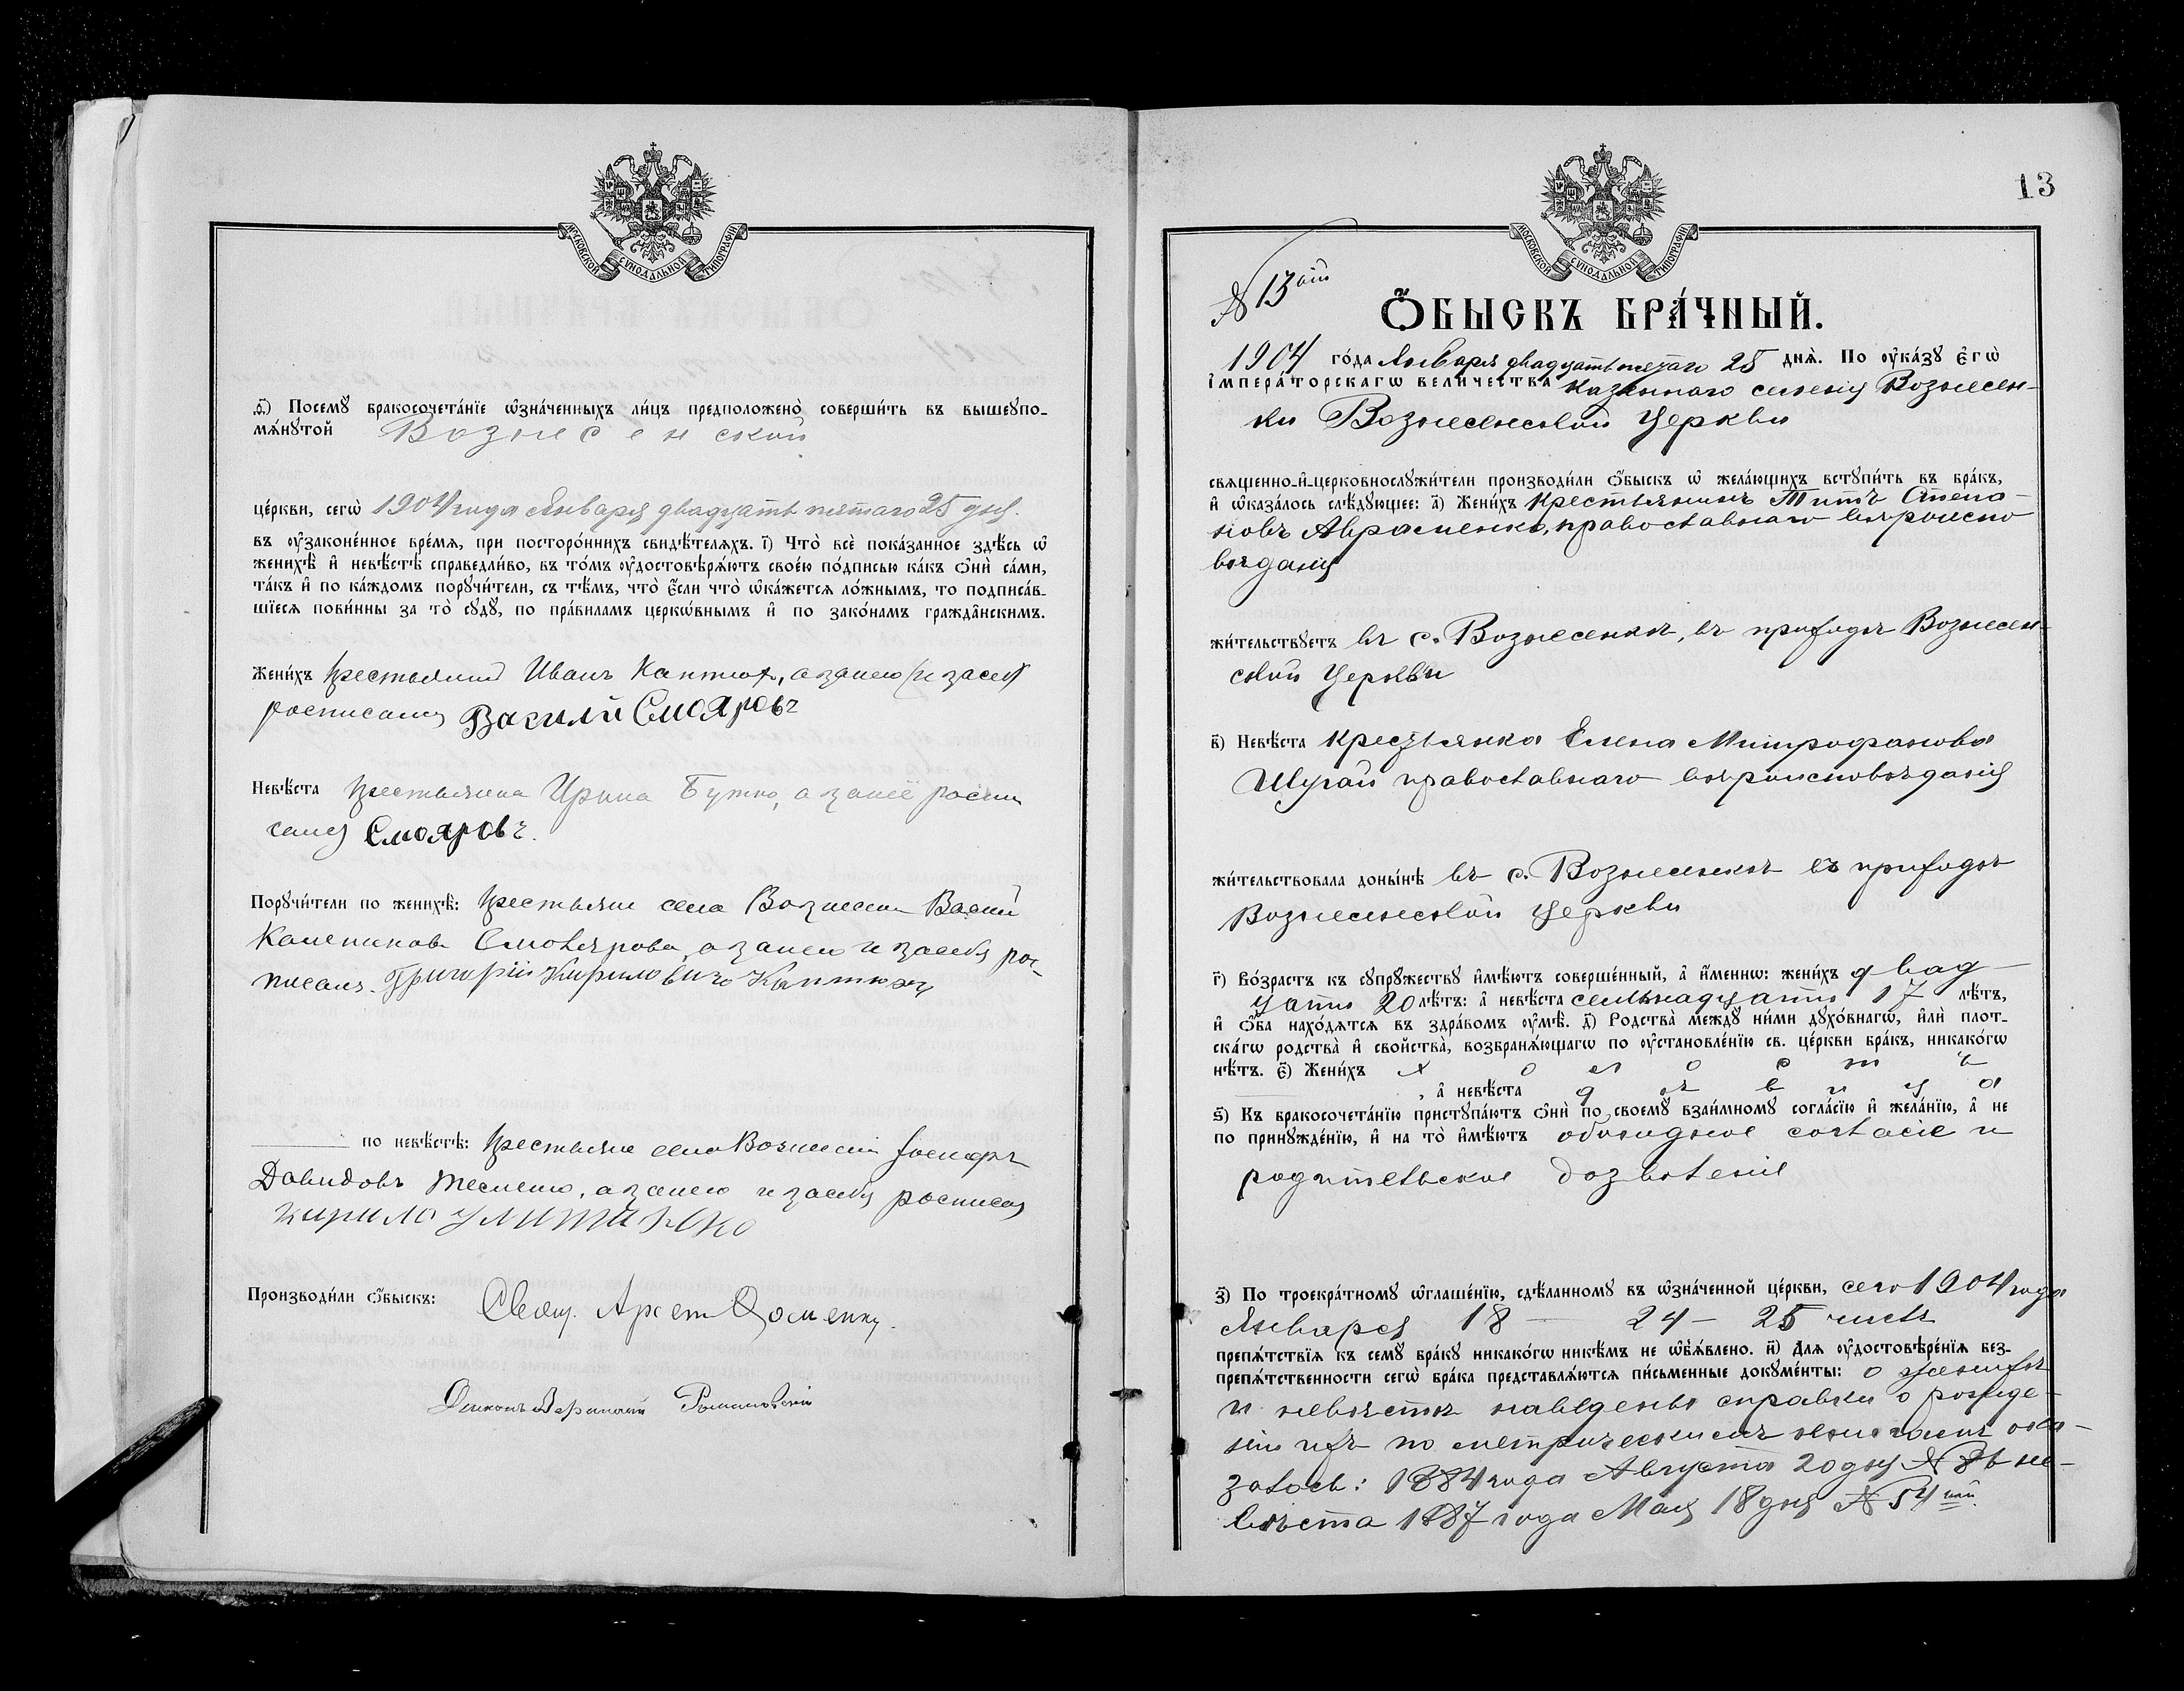 МОСКОВСКОЙ СѴНОДАЛЬНОЙ ТИПОГРАФІИ
ѳ҃) Посемꙋ бракосочета́нїе ѡ҆зна́ченныхъ ли́цъ предположено̀ соверши́ть въ вышеупо-
мѧ́нꙋтой Вознесенской
це́ркви, сегѡ̀ 1904 года Января двадцать пятаго 25 дня.
въ ᲂу҆законе́нное вре́мѧ, при посторо́ннихъ свидѣ́телѧхъ. і҃) Что̀ всѐ пока́занное здѣ́сь ѡ҆
женихѣ̀ и҆ невѣ́стѣ справедли́во, въ то́мъ ᲂу҆достовѣрѧ́ютъ свое́ю по́дписью ка́къ ѻ҆нѝ са́ми,
та́къ и҆ по ка́ждомъ порꙋчи́тели, съ тѣ́мъ, что̀ є҆́сли что̀ ѡ҆ка́жетсѧ ло́жнымъ, то подписа́в-
шїесѧ пови́нны за то̀ сꙋдꙋ̀, по пра́виламъ церко́внымъ и҆ по зако́намъ гражда̂нскимъ.
Жени́хъ крестьянинъ Иванъ Каптюх, а занего и засебя
росписался Василій Смоляровъ
Невѣ́ста крестьянка Ирина Бутко, а занеё роспи
сался Смоляровъ.
Порꙋчи́тели по женихѣ̀: крестьяне села Вознесенки
Смолярова, а занего и засебя рос-
писалъ. Григорій Кириловичъ Каптюх
по невѣ́стѣ: крестьяне села Вознесенки
Давидовъ Тесленко, а занего и засебя росписался
Кирило Улитинко
Производи́ли ѻ҆́быскъ: Свящ.
Діаконъ Романовскій
13
МОСКОВСКОЙ СѴНОДАЛЬНОЙ ТИПОГРАФІИ
№ 13ый
Ѻ҆́БЫСКЪ БРА́ЧНЫЙ.
1904 го́да Января двадцать пятаго 25 днѧ̀. По ᲂу҆ка́зꙋ є҆гѡ̀
і҆мпера́торскагѡ вели́чества Казеннаго селенія Вознесен-
ки Вознесенской Церкви
свѧще́нно-и҆-церковнослꙋжи́тели производи́ли ѻ҆́быскъ ѡ҆ жела́ющихъ встꙋпи́ть въ бра́къ,
и҆ ѡ҆каза́лось слѣ́дꙋющее: а҃) Жени́хъ Крестьянинъ Титъ Степа-
новъ Авраменко, православнаго вѣроиспо
вѣданія
жи́тельствꙋетъ въ с. Вознесенкѣ, въ приходѣ Вознесен-
ской Церкви
в҃) Невѣ́ста Крестьянка Елена Митрофанова
Шугай православнаго вѣроисповѣданія
жи́тельствовала доны́нѣ въ с. Вознесенкѣ въ приходѣ
Вознесенской Церкви
г҃) Во́зрастъ къ сꙋпрꙋ́жествꙋ и҆мѣ́ютъ соверше́нный, а҆ и҆́меннѡ: жени́хъ двад-
цати 20 лѣ́тъ: а҆ невѣ́ста семнадцати 17 лѣ́тъ,
и҆ ѻ҆́ба нахо́дѧтсѧ въ здра́вомъ ᲂу҆мѣ̀. д҃) Родства̀ междꙋ̀ ни́ми дꙋхо́внагѡ, и҆лѝ плот-
ска́гѡ родства̀ и҆ свойства̀, возбранѧ́ющагѡ по ᲂу҆становле́нїю св. це́ркви бра́къ, никако́гѡ
нѣ́тъ. є҃) Жени́хъ холостъ
, а҆ невѣ́ста дѣвица
ѕ҃) Къ бракосочета́нїю пристꙋпа́ютъ ѻ҆нѝ по своемꙋ̀ взаи́мномꙋ согла́сїю и҆ жела́нїю, а҆ не
по принꙋжде́нїю, и҆ на то̀ и҆мѣ́ютъ обоюдное согласіе и
родительское дозволеніе
з҃) По троекра́тномꙋ ѡ҆глаше́нїю, сдѣ́ланномꙋ въ ѡ҆зна́ченной це́ркви, сего 1904 года
Января 18 — 24 — 25 числъ
препѧ́тствїѧ къ семꙋ̀ бра́кꙋ никако́гѡ никѣ́мъ не ѡ҆б̾ѧ́влено. и҃) Длѧ ᲂу҆достовѣре́нїѧ без-
препѧ́тственности сегѡ̀ бра́ка представлѧ́ютсѧ пи́сьменные докꙋме́нты: о женихѣ
и невѣстѣ наведены справки о рожде-
ніи ихъ по метрическимъ книгамъ ока-
залось: 1884 года Августа 20 дня не-
вѣста 1887 года Мая 18 дня № 54ый.